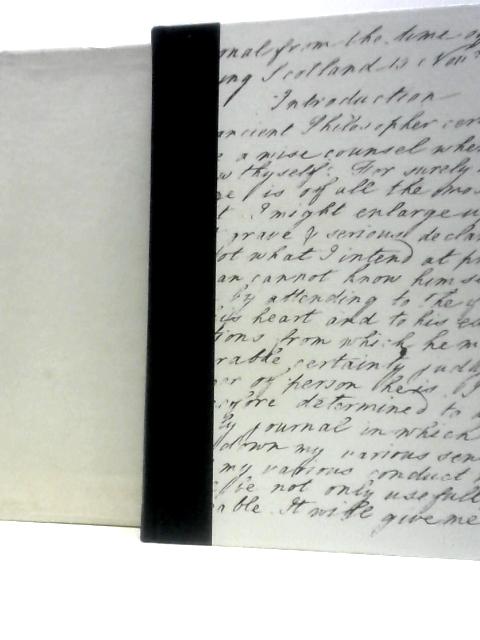 rnal from the time of
ing Scotland 15 Nov.
Introduction
ancient Philosopher cer
a wise counsel whe
w thyself: For surely
ge is of all the mos
t. I might enlarge u
grave & serious decla
ot what I intend at pr
an cannot know himse
by attending to the
is heart and to his ex
tions from which he m
rable certainty judg
er of person he is. I
efore determined to
ly journal in which
down my various sen
my various conduct
be not only usefull
able. It will give me